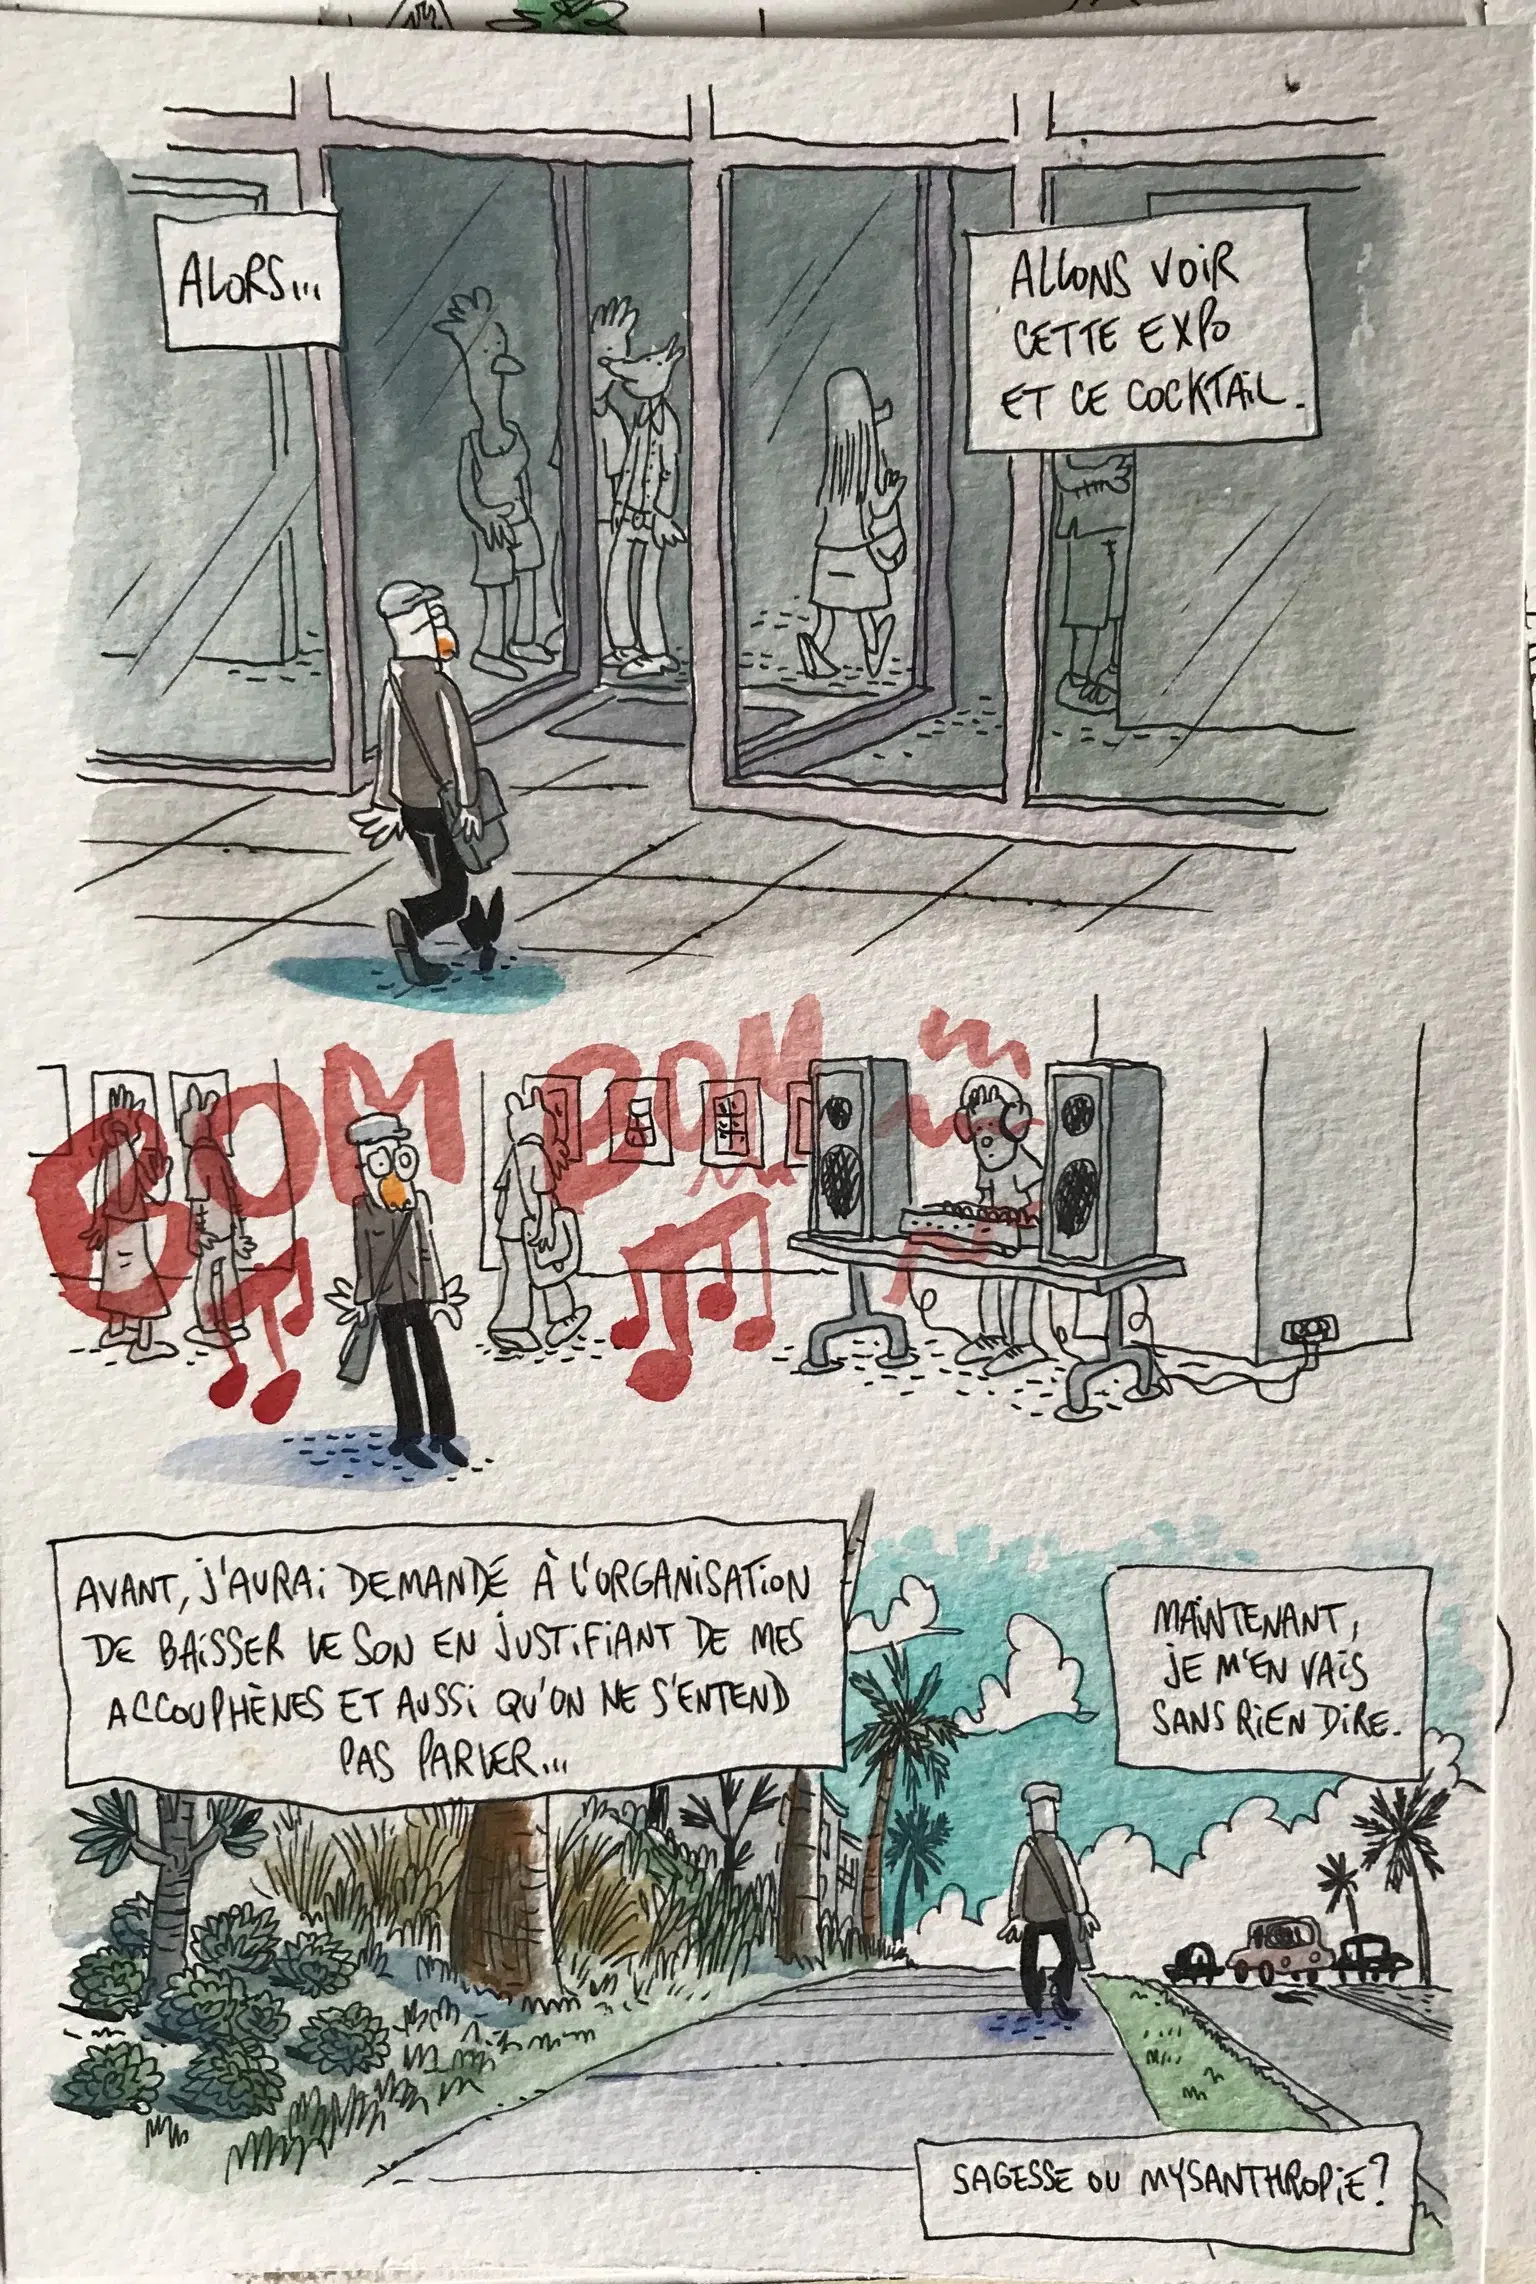 ALORS...
ALLONS VOIR
CETTE EXPO
ET CE COCKTAIL.
BOM BOM
AVANT, J'AURAI DEMANDÉ À L'ORGANISATION
DE BAISSER LE SON EN JUSTIFIANT DE MES
ACCOUPHÈNES ET AUSSI QU'ON NE S'ENTEND
PAS PARLER...
MAINTENANT,
JE M'EN VAIS
SANS RIEN DIRE.
SAGESSE OU MYSANTHROPIE?